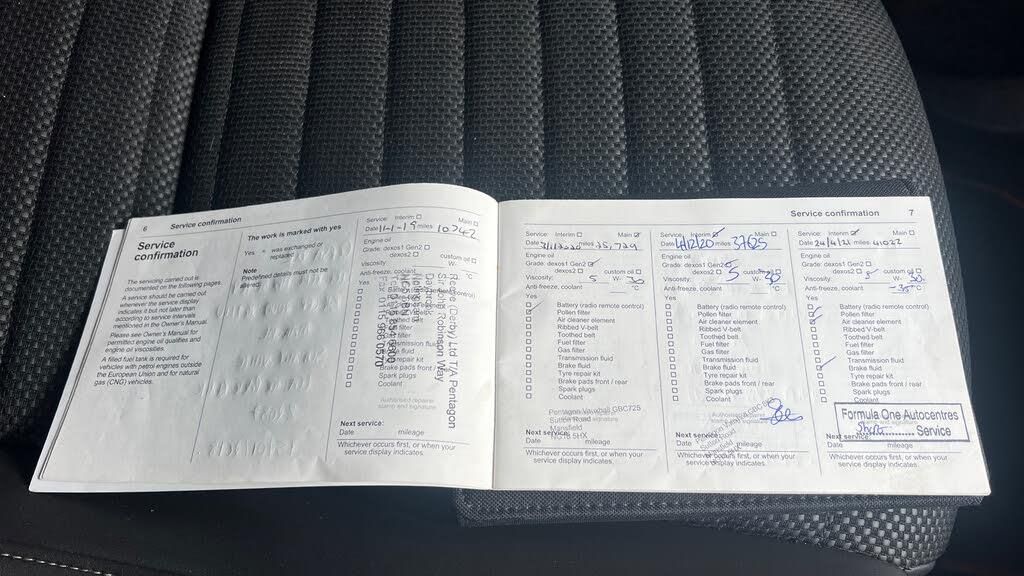 6 Service confirmation
Service
confirmation
The servicing carried out is
documented on the following pages.
A service should be carried out
whenever the service display
indicates it but not later than
according to service intervals
mentioned in the Owner's Manual.
Please see Owner's Manual for
permitted engine oil qualities and
engine oil viscosities.
A filled fuel tank is required for
vehicles with petrol engines outside
the European Union and for natural
gas (CNG) vehicles.
The work is marked with yes
Yes = was exchanged or
replaced
Note
Predefined details must not be
altered.
Service: Interim Main
Date 11-1-19 miles 10742
Engine oil
Grade: dexos1 Gen2
dexos2 custom oil
Viscosity: W- °C
Anti-freeze, coolant
Yes
Brake fluid
Tyre repair kit
Brake pads front / rear
Spark plugs
Coolant
Authorised repairer
stamp and signature
(Derby) Ltd T/A Pentagon
Sir John Robinson Way
Next service:
Date mileage
Whichever occurs first, or when your
service display indicates.
Service confirmation 7
Service: Interim Main
Date miles
Engine oil
Grade: dexos1 Gen2
dexos2 custom oil
Viscosity: 5 W- 30
Anti-freeze, coolant °C
Yes
Battery (radio remote control)
Pollen filter
Air cleaner element
Ribbed V-belt
Toothed belt
Fuel filter
Gas filter
Transmission fluid
Brake fluid
Tyre repair kit
Brake pads front / rear
Spark plugs
Coolant
Pentagon Vauxhall GBC725
Sutton Road
Mansfield
NG18 5HX
Next service:
Date mileage
Whichever occurs first, or when your
service display indicates.
Service: Interim Main
Date 4/12/20 miles 37625
Engine oil
Grade: dexos1 Gen2
dexos2 custom oil
Viscosity: 5 W- 30
Anti-freeze, coolant °C
Yes
Battery (radio remote control)
Pollen filter
Air cleaner element
Ribbed V-belt
Toothed belt
Fuel filter
Gas filter
Transmission fluid
Brake fluid
Tyre repair kit
Brake pads front / rear
Spark plugs
Coolant
Next service:
Date mileage
Whichever occurs first, or when your
service display indicates.
Service: Interim Main
Date 24/4/21 miles 41022
Engine oil
Grade: dexos1 Gen2
dexos2 custom oil
Viscosity: 5 W- 30
Anti-freeze, coolant -35 °C
Yes
Battery (radio remote control)
Pollen filter
Air cleaner element
Ribbed V-belt
Toothed belt
Fuel filter
Gas filter
Transmission fluid
Brake fluid
Tyre repair kit
Brake pads front / rear
Spark plugs
Coolant
Formula One Autocentres
Service
Next service:
Date mileage
Whichever occurs first, or when your
service display indicates.